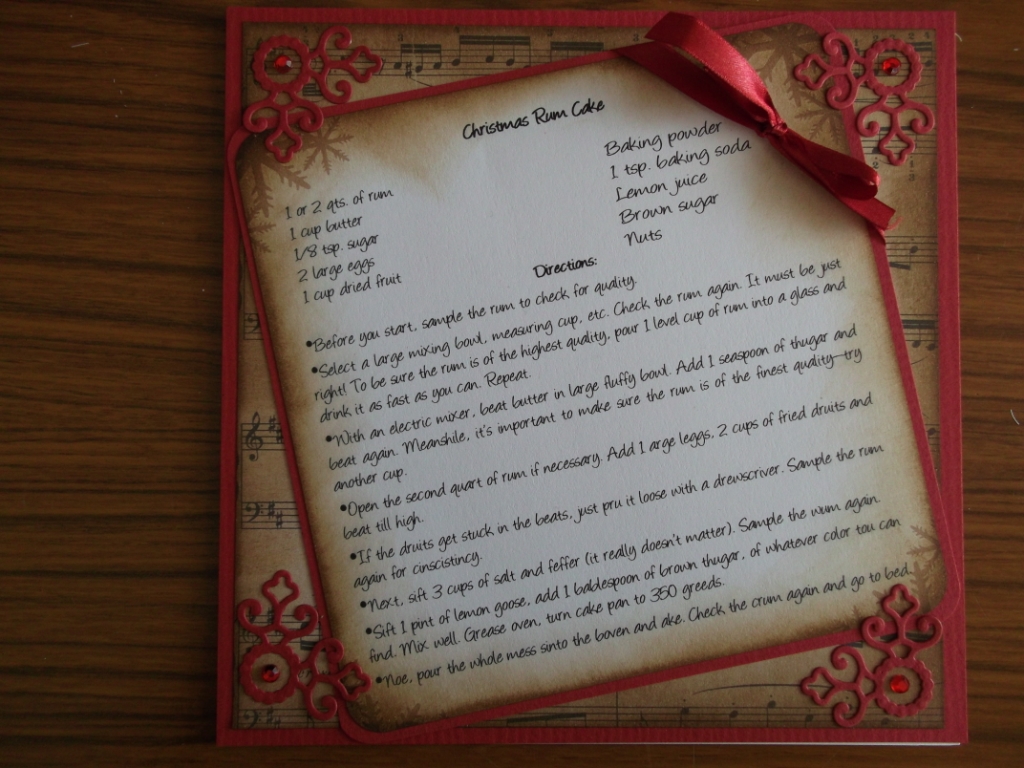 Christmas Rum Cake
1 or 2 qts. of rum
1 cup butter
1/8 tsp. sugar
2 large eggs
1 cup dried fruit
Baking powder
1 tsp. baking soda
Lemon juice
Brown sugar
Nuts
Directions:
•Before you start, sample the rum to check for quality.
•Select a large mixing bowl, measuring cup, etc. Check the rum again. It must be just
right! To be sure the rum is of the highest quality, pour 1 level cup of rum into a glass and
drink it as fast as you can. Repeat.
•With an electric mixer, beat butter in large fluffy bowl. Add 1 seaspoon of thugar and
beat again. Meanshile, it's important to make sure the rum is of the finest quality—try
another cup.
•Open the second quart of rum if necessary. Add 1 arge leggs, 2 cups of fried druits and
beat till high.
•If the druits get stuck in the beats, just pru it loose with a drewscriver. Sample the rum
again for cinscistincy.
•Next, sift 3 cups of salt and feffer (it really doesn't matter). Sample the wum again.
•Sift 1 pint of lemon goose, add 1 baldespoon of brown thugar, of whatever color tou can
find. Mix well. Grease oven, turn cake pan to 350 greeds.
•Noe, pour the whole mess sinto the boven and ake. Check the crum again and go to bed.